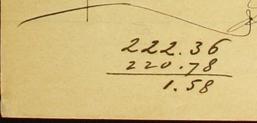 222.36
220.78
1.58